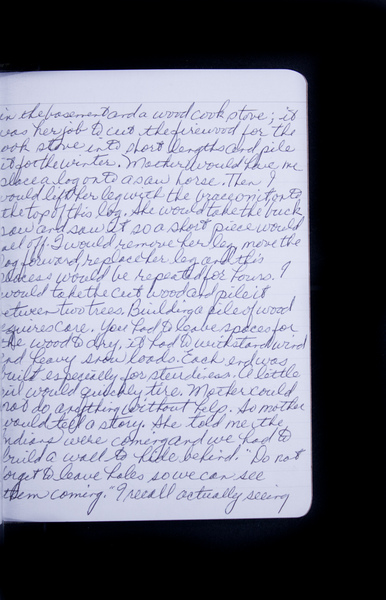 in the basement and a wood cook stove; it
was her job to cut the firewood for the
ook stove into short lengths and pile
it for the winter. Mother would have me
place a log onto a saw horse. Then I
would lift her leg with the brace on it onto
the top of this log. She would take the buck
saw and saw it so a short piece would
all off. I would remove her leg, move the
og forward, replace her leg and this
rocess would be repeated for hours. I
would take the cut wood and pile it
etween two trees. Building a pile of wood
equires care. You had to leave spaces for
the wood to dry, it had to withstand wind
and heavy snow loads. Each end was
uilt especially for sturdiess. A little
girl would quickly tire. Mother could
not do anything without help. So mother
would tell a story. She told me the
ndians were coming and we had to
build a wall to hide behind. "Do not
orget to leave holes so we can see
them coming." I recall actually seeing